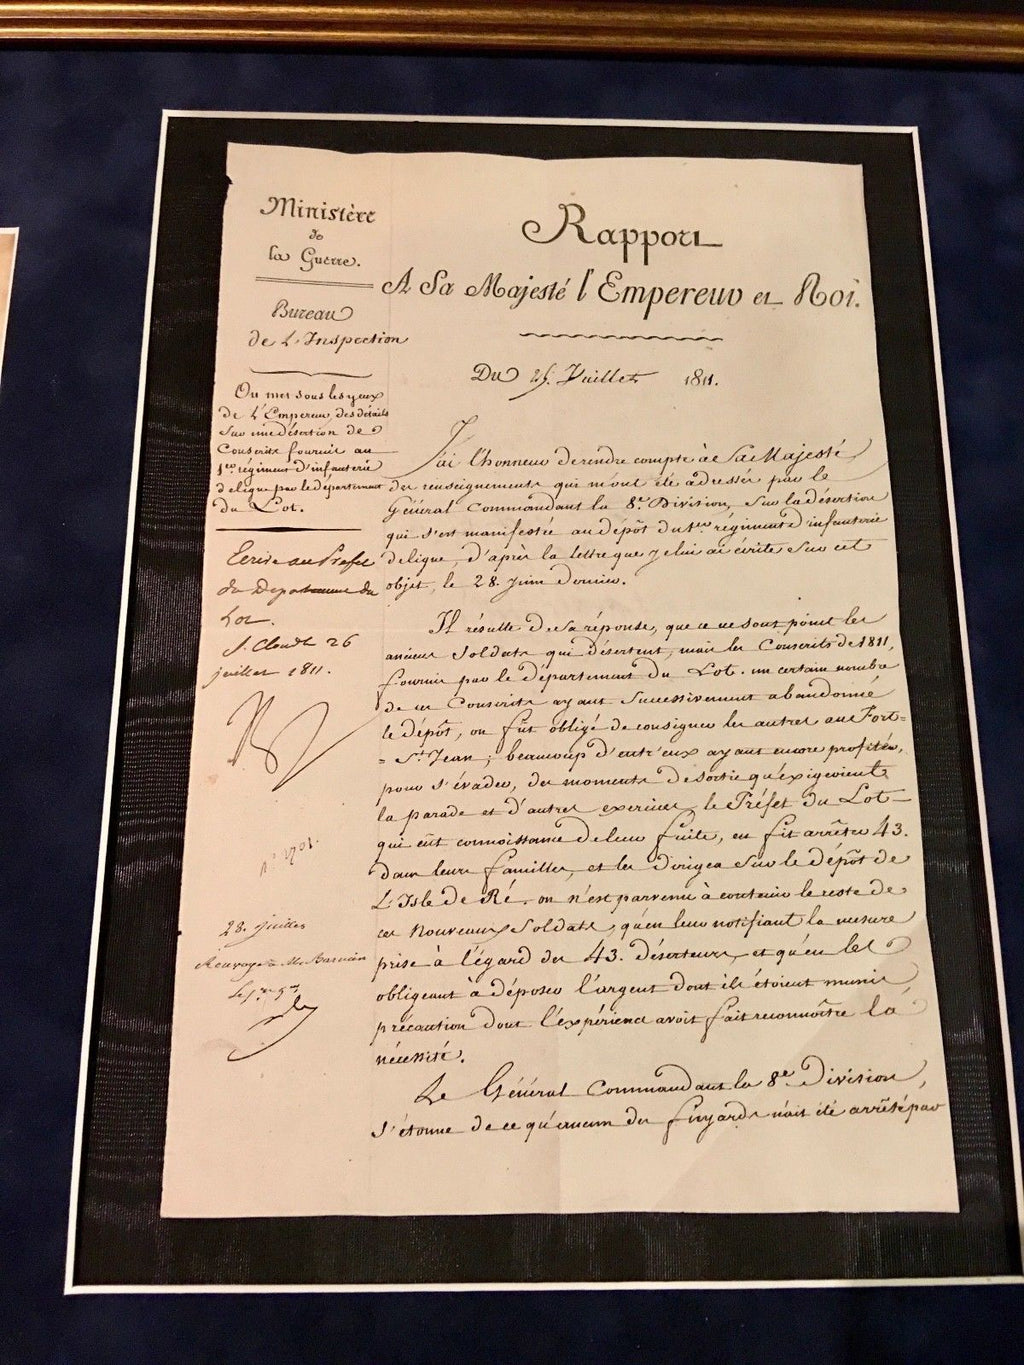 Ministère
de
la Guerre.
Bureau
de L'Inspection
On met sous les yeux
de L'Empereur, des détails
sur une désertion de
Conscrits fournis au
1er régiment d'infanterie
de ligne par le département
du Lot.
Ecrire au Préfet
du Departement du
Lot.
St. Cloud 26
juillet 1811.
28. juillet
Renvoyé à M.
Rapport
A Sa Majesté l'Empereur et Roi.
Du 25. Juillet 1811.
J'ai l'honneur de rendre compte à Sa Majesté
des renseignements qui m'ont été adressés par le
Général Commandant la 8e. Division, sur la désertion
qui s'est manifestée au dépôt du 1er régiment d'infanterie
de ligne, d'après la lettre que je lui ai écrite sur cet
objet, le 28. Juin dernier.
Il résulte de sa réponse, que ce ne sont point les
anciens Soldats qui désertent, mais les Conscrits de 1811,
fournis par le département du Lot. un certain nombre
de ces Conscrits ayant successivement abandonné
le dépôt, on fût obligé de consigner les autres au Fort=
=St. Jean; beaucoup d'entr'eux ayant encore profité,
pour s'évader, des moments de sortie qu'exigeoient
la parade et d'autres exercices, le Préfet du Lot
qui eût connoissance de leur fuite, en fit arrêter 43.
dans leurs familles, et les dirigea sur le dépôt de
L'Isle de Ré. on n'est parvenu à contenir le reste de
ces nouveaux Soldats, qu'en leur notifiant la mesure
prise à l'égard des 43. déserteurs, et qu'en les
obligeant à déposer l'argent dont ils étoient munis,
précaution dont l'expérience avoit fait reconnoître la
nécessité.
Le Général Commandant la 8e. Division,
s'étonne de ce qu'aucun des fuyards n'ait été arrêté par